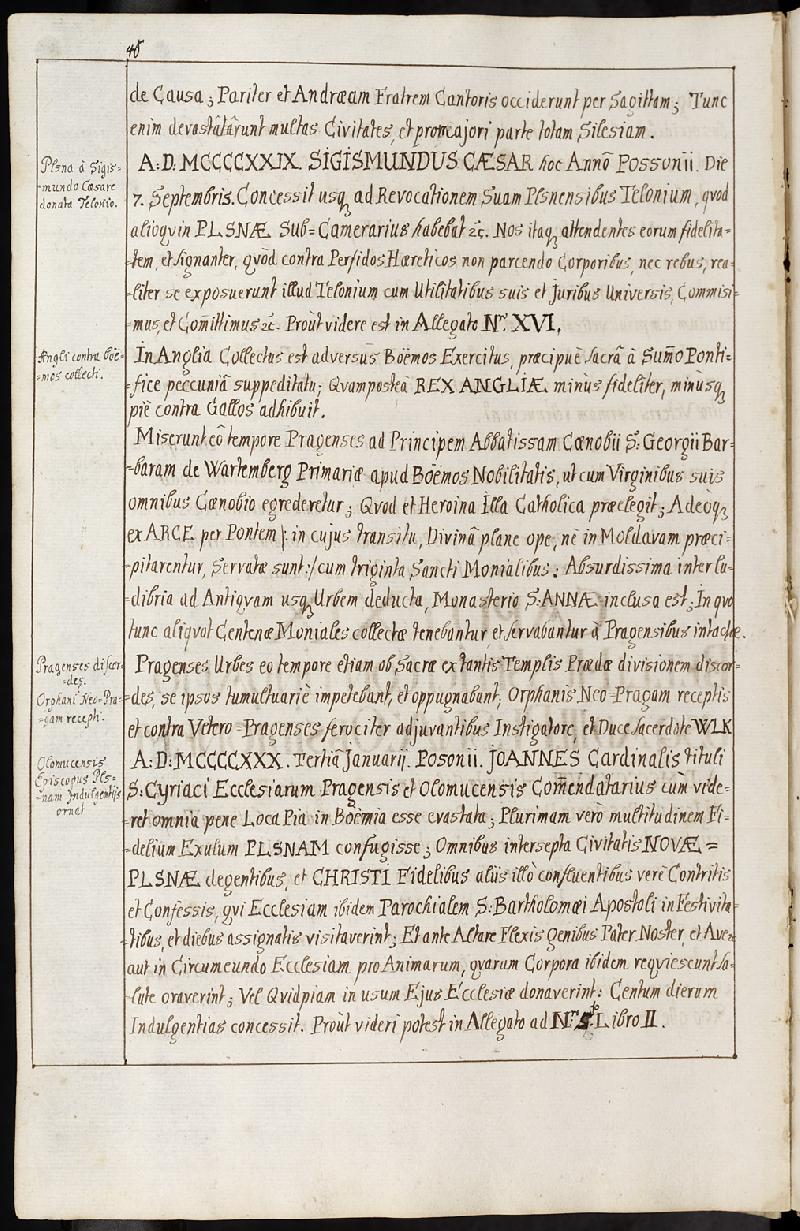 48
de Causa; Pariter et Andræam Fratrem Cantoris occiderunt per Sagittam; Tunc
enim devastâtârunt multas Civitates, et pro majori parte totam Silesiam.
Plsna à Sigis=
=mundo Cæsare
donata Telonio.
A: D. MCCCCXXIX. SIGISMUNDUS CÆSAR hoc Annô Possonii. Die
7. Septembris. Concessit usq3 ad Revocationem Suam Plsnensibus Telonium, qvod
alioqvin PLSNÆ Sub=Camerarius habebat &c. Nos itaq3 attendentes eorum fidelita=
=tem, et signanter, qvôd contra Perfidos Hæreticos non parcendo Corporibus, nec rebus, rea=
=liter se exposuerunt illud Telonium cum Utilitatibus suis et Juribus Universis, Commisi=
=mus, et Com̄ittimus &c. Proùt videre est in Allegato Nrô XVI,
Angli contra Böe=
=mos collecti.
In Anglia Collectus est adversus Boëmos Exercitus, præcipuè sacrâ à Sum̄o Ponti=
=fice peccuniâ suppeditatu; Qvampostea REX ANGLIÆ minùs fideliter, minùsq3
piè contra Gallos adhibuit.
Miserunt eô tempore Pragenses ad Principem Abbatissam Cœnobii S: Georgii Bar=
=baram de Wartemberg Primariæ apud Boëmos Nobilitatis, ut cum Virginibus suis
omnibus Cœnobio egrederetur; Qvod et Heroina illa Catholica præelegit; Adeòq3
ex ARCE per Pontem /: in cujus transitu, Divinâ planè ope, nè in Moldavam præci=
=pitarentur, Servatæ sunt :/ cum triginta Sancti Monialibus: Absurdissima inter lu=
=dibria ad Antiqvam usq3 Urbem deducta, Monasterio S: ANNÆ inclusa est; In qvo
tunc aliqvot Centenæ Moniales collectæ tenebantur, et servabantur à Pragensibus intactæ.
Pragenses discor=
=des.
Orphani Neo=Pra=
=gam recepti.
Pragenses Urbes eo tempore etiam ob Sacræ extantis Templis Prædæ divisionem discor=
=des, se ipsos tumultuariè impetebant, et oppugnabant, Orphanis Neo=Pragam receptis
et contra Vetero=Pragenses ferociter adjuvantibus Instigatore, et Duce sacerdote WLK
Olomucensis
Episcopus Pls=
=nam Indulgentiis
ornat.
A: D: MCCCCXXX. Tertiâ Januarij. Posonii. JOANNES Cardinalis tituli
S: Cyriaci Ecclesiarum Pragensis et Olomucensis Com̄endatarius cùm vide=
=ret omnia pene Loca Pia in Boëmia esse evastata; Plurimam verò multitudinem Fi=
=delium Exulum PLSNAM confugisse; Omnibus intersepta Civitatis NOVÆ=
PLSNÆ degentibus, et CHRISTI Fidelibus aliis illò confluentibus verè Contritis
et Confessis, qvi Ecclesiam ibidem Parochialem S: Bartholomæi Apostoli in Festivita=
=tibus, et diebus assignatis visitaverint; Et ante Altare Flexis genibus Pater Noster, et Ave;
aut in Circumeundo Ecclesiam pro Animarum, qvarum Corpora ibidem reqviescunt sa=
=lute oraverint; Vel Qvidpiam in usum Ejus Ecclesiæ donaverint: Centum dierum
Indulgentias concessit. Proùt videri potest in Allegato ad Nrum Libro II.